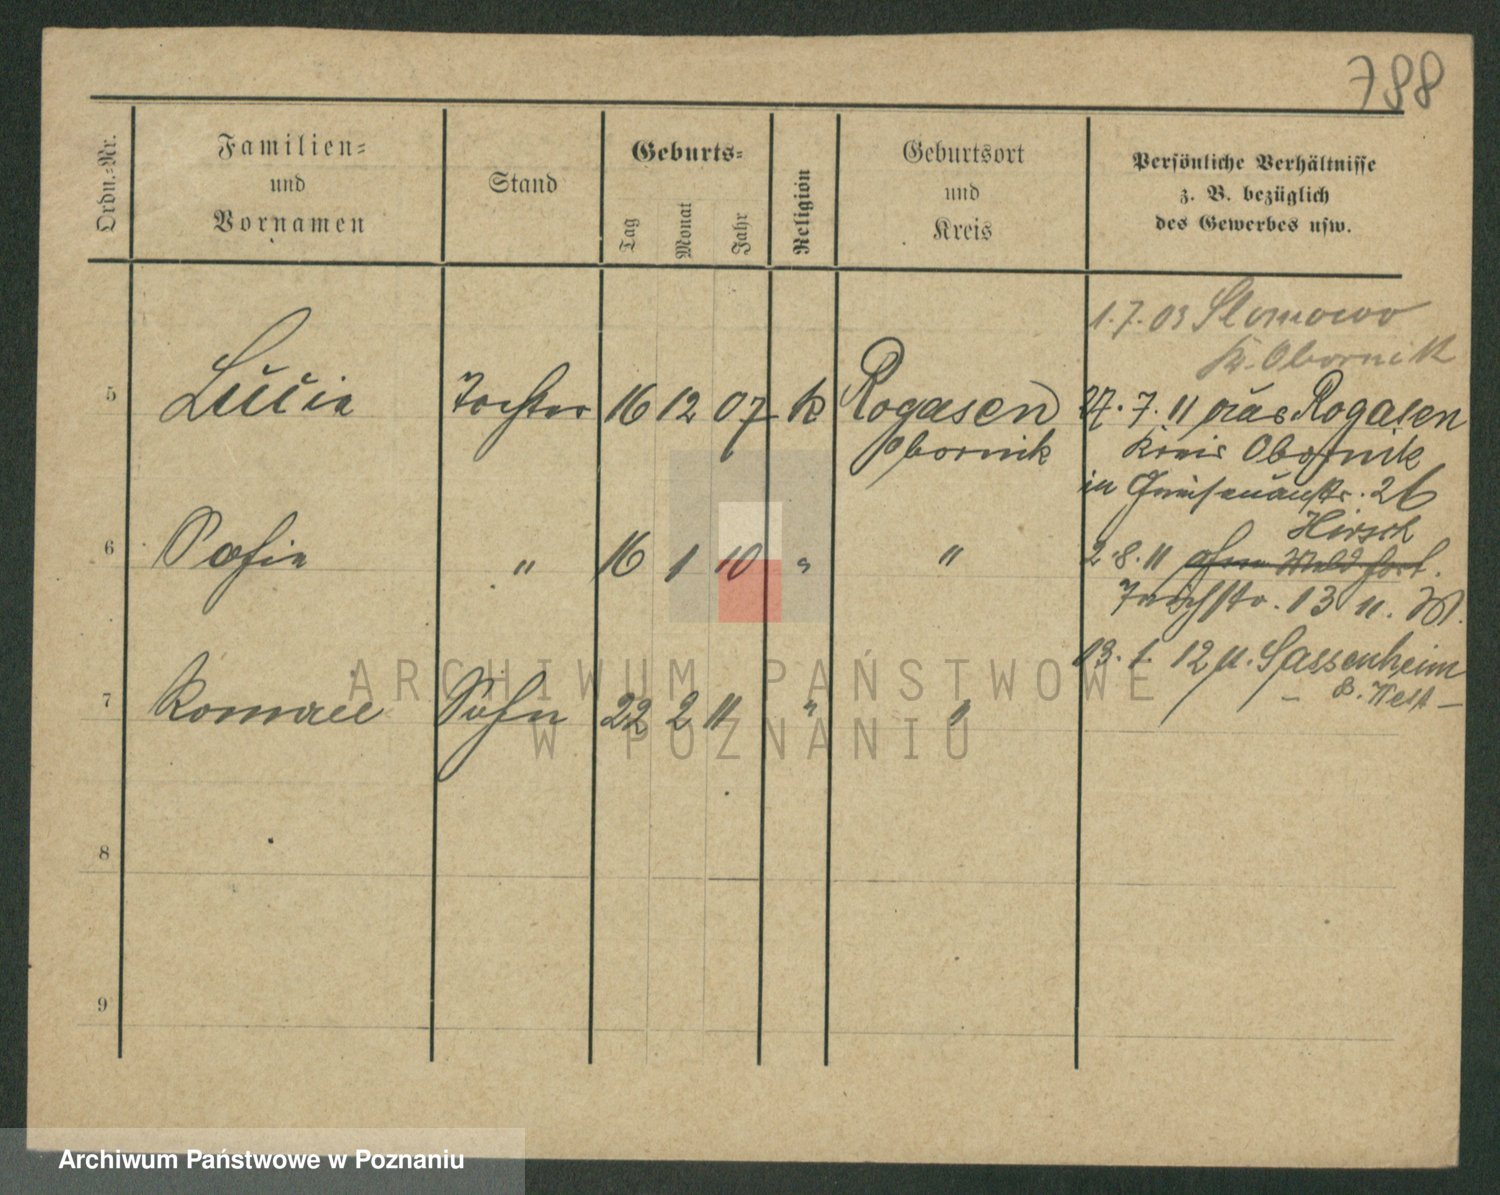 788
Ordn.-Nr.
Familien-
und
Vornamen
Stand
Geburts-
Tag
Monat
Jahr
Religion
Geburtsort
und
Kreis
Persönliche Verhältnisse
z. B. bezüglich
des Gewerbes usw.
1.7.03 Slomowo
K. Obornik
5 Lucie Tochter 16 12 07 k Rogasen
Obornik
27.7.11 aus Rogasen
Kreis Obornik
in Gneisenaustr. 26
Hirsch
6 Sofie " 16 1 10 " "
2.8.11 ohne Meld fort.
13 u. W.
7 Roman Sohn 22 2 11 " "
13.1.12 u. Sassenheim
- B. West -
8
9
ARCHIWUM PAŃSTWOWE
W POZNANIU
Archiwum Państwowe w Poznaniu